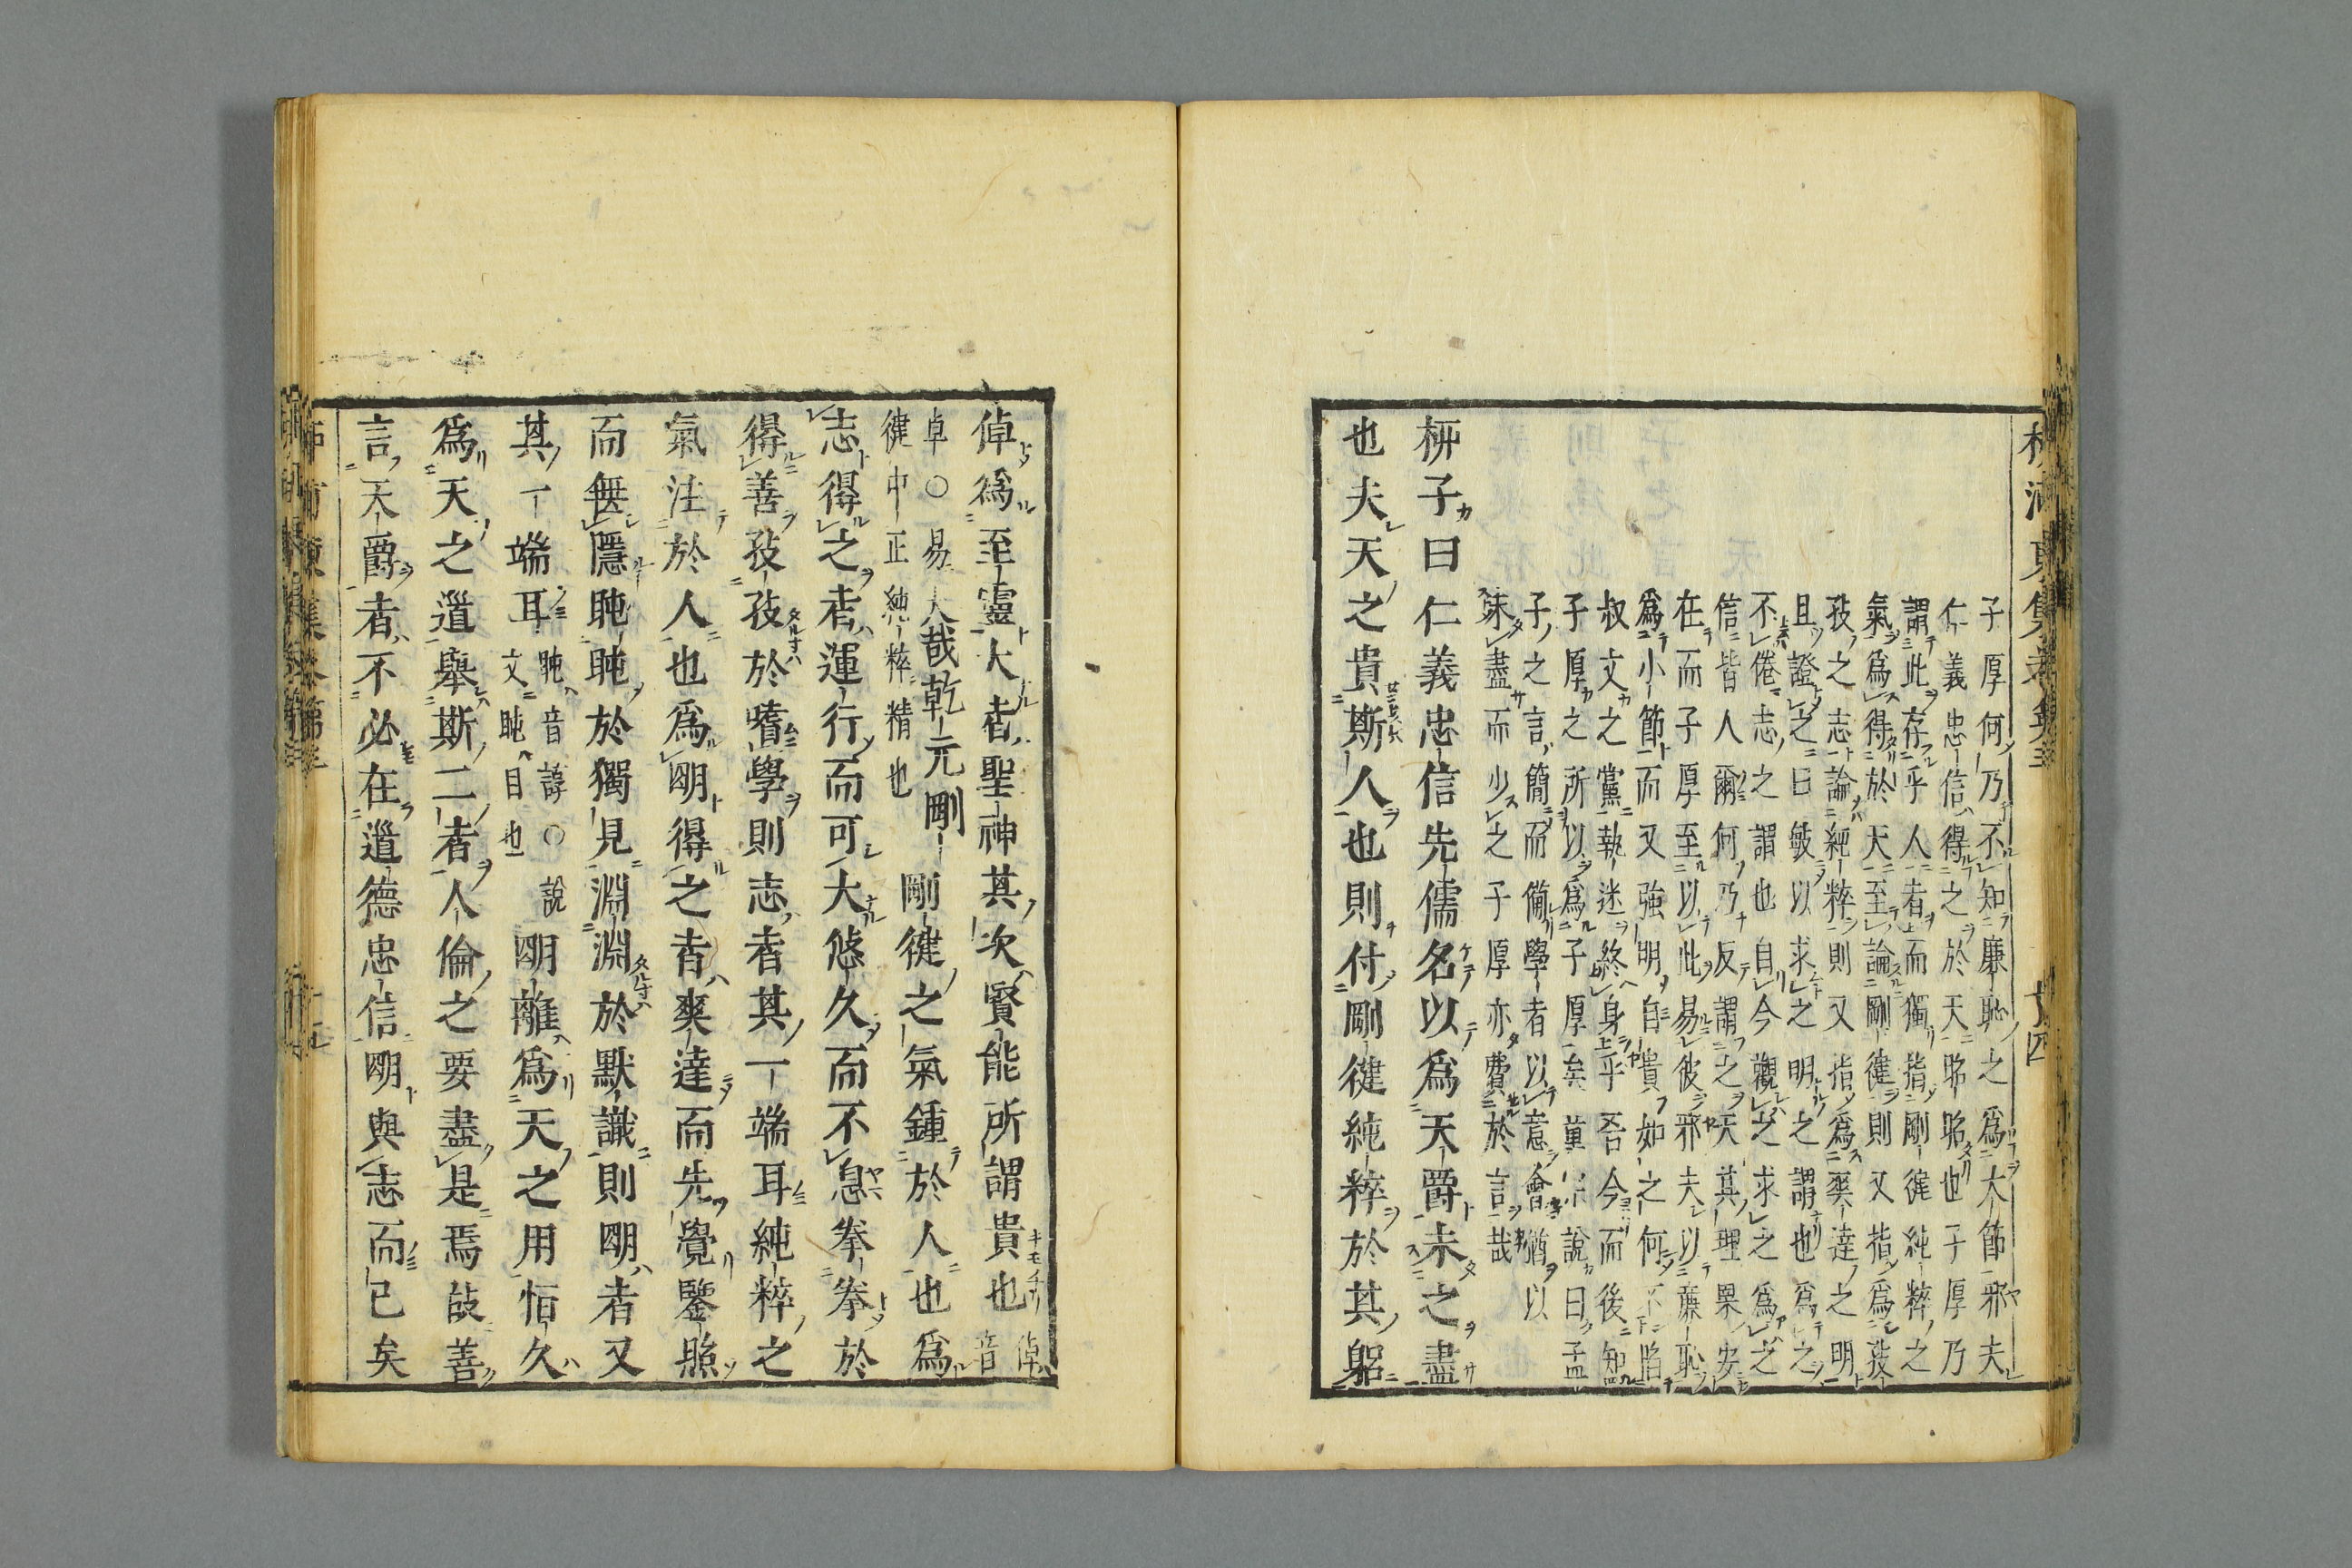 子厚何乃不知廉恥之爲大節邪夫
仁義忠信得之於天昭昭也子厚乃
謂此存乎人者而獨指剛健純粹之
氣爲得於天至論剛健則又指爲孜
孜之志論純粹則又指爲爽達之明
且證之曰敏以求之明之謂也爲之
不倦志之謂也自今觀之求之爲之
信皆人爾何乃反謂之天其理果安
在而子厚至以此易彼邪夫以廉恥
爲小節而又強明自貴如之何不陷
叔文之黨執迷終身乎吾今而後知
子厚之所以爲子厚矣 說曰孟
子之言簡而備學者以意會猶以
未盡而少之子厚亦費於言哉
柳子曰仁義忠信先儒名以爲天爵未之盡
也夫天之貴斯人也則付剛健純粹於其躬
倬爲至靈大者聖神其次賢能所謂貴也倬音
卓○易大哉乾元剛健中正純粹精也剛健之氣鍾於人也爲
志得之者運行而可大悠久而不息拳拳於
得善孜孜於嗜學則志者其一端耳純粹之
氣注於人也爲明得之者爽達而先覺鑒照
而無隱盹盹於獨見淵淵於默識則明者又
其一端耳盹音諄○說文盹目也明離爲天之用恒久
爲天之道舉斯二者人倫之要盡是焉故善
言天爵者不必在道德忠信明與志而已矣